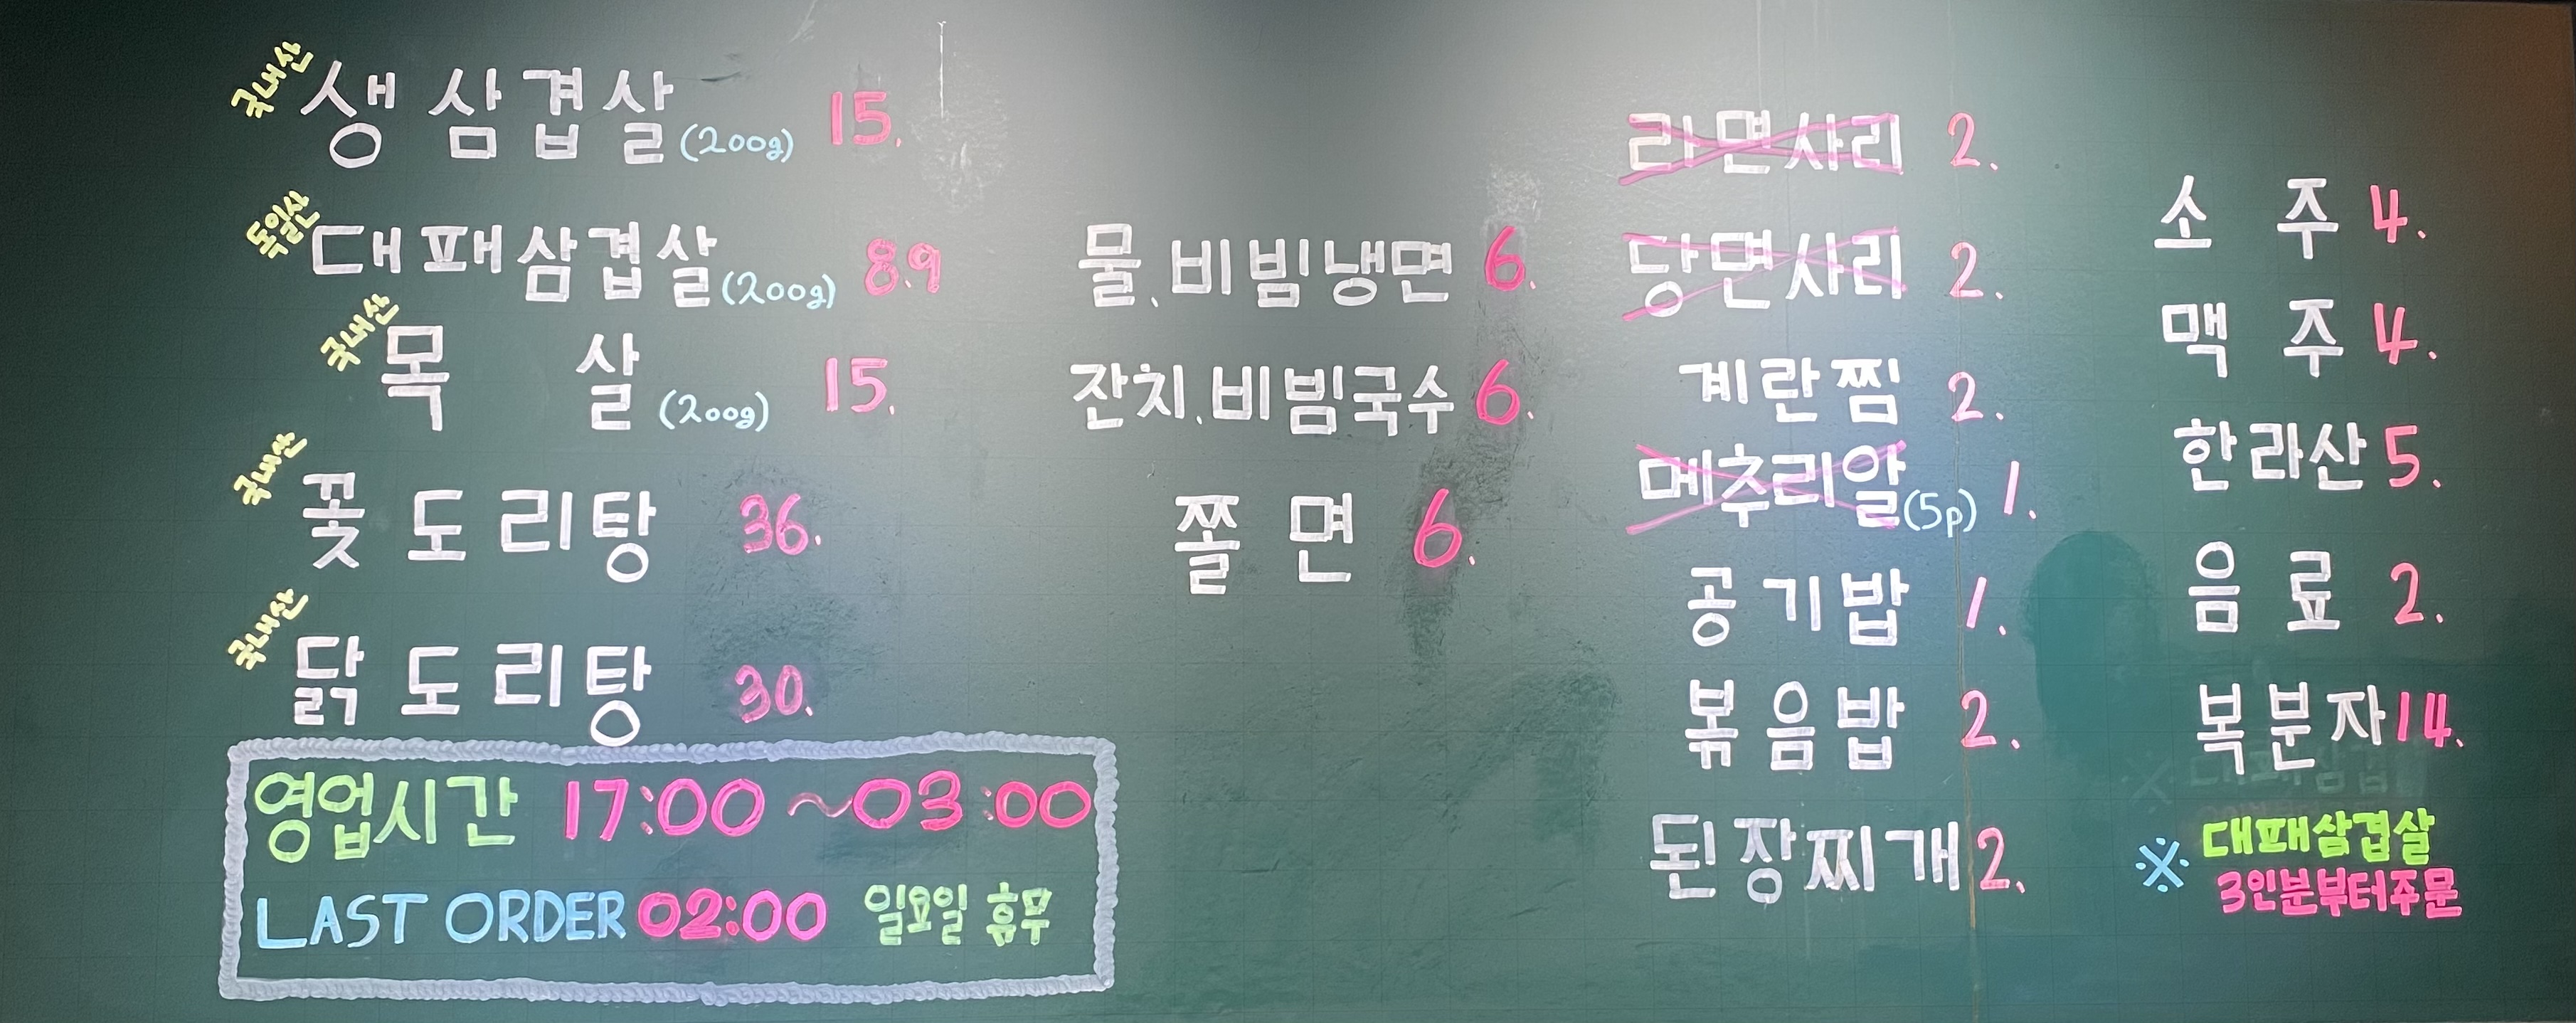 국내산 생삼겹살 (200g) 15.
독일산 대패삼겹살 (200g) 8.9
국내산 목살 (200g) 15.
국내산 꽃도리탕 36.
국내산 닭도리탕 30.
영업시간 17:00 ~ 03:00
LAST ORDER 02:00 일요일 휴무
물.비빔냉면 6.
잔치.비빔국수 6.
쫄면 6.
라면사리 2.
당면사리 2.
계란찜 2.
메추리알 (5p) 1.
공기밥 1.
볶음밥 2.
된장찌개 2.
소주 4.
맥주 4.
한라산 5.
음료 2.
복분자 14.
※ 대패삼겹살
3인분부터주문